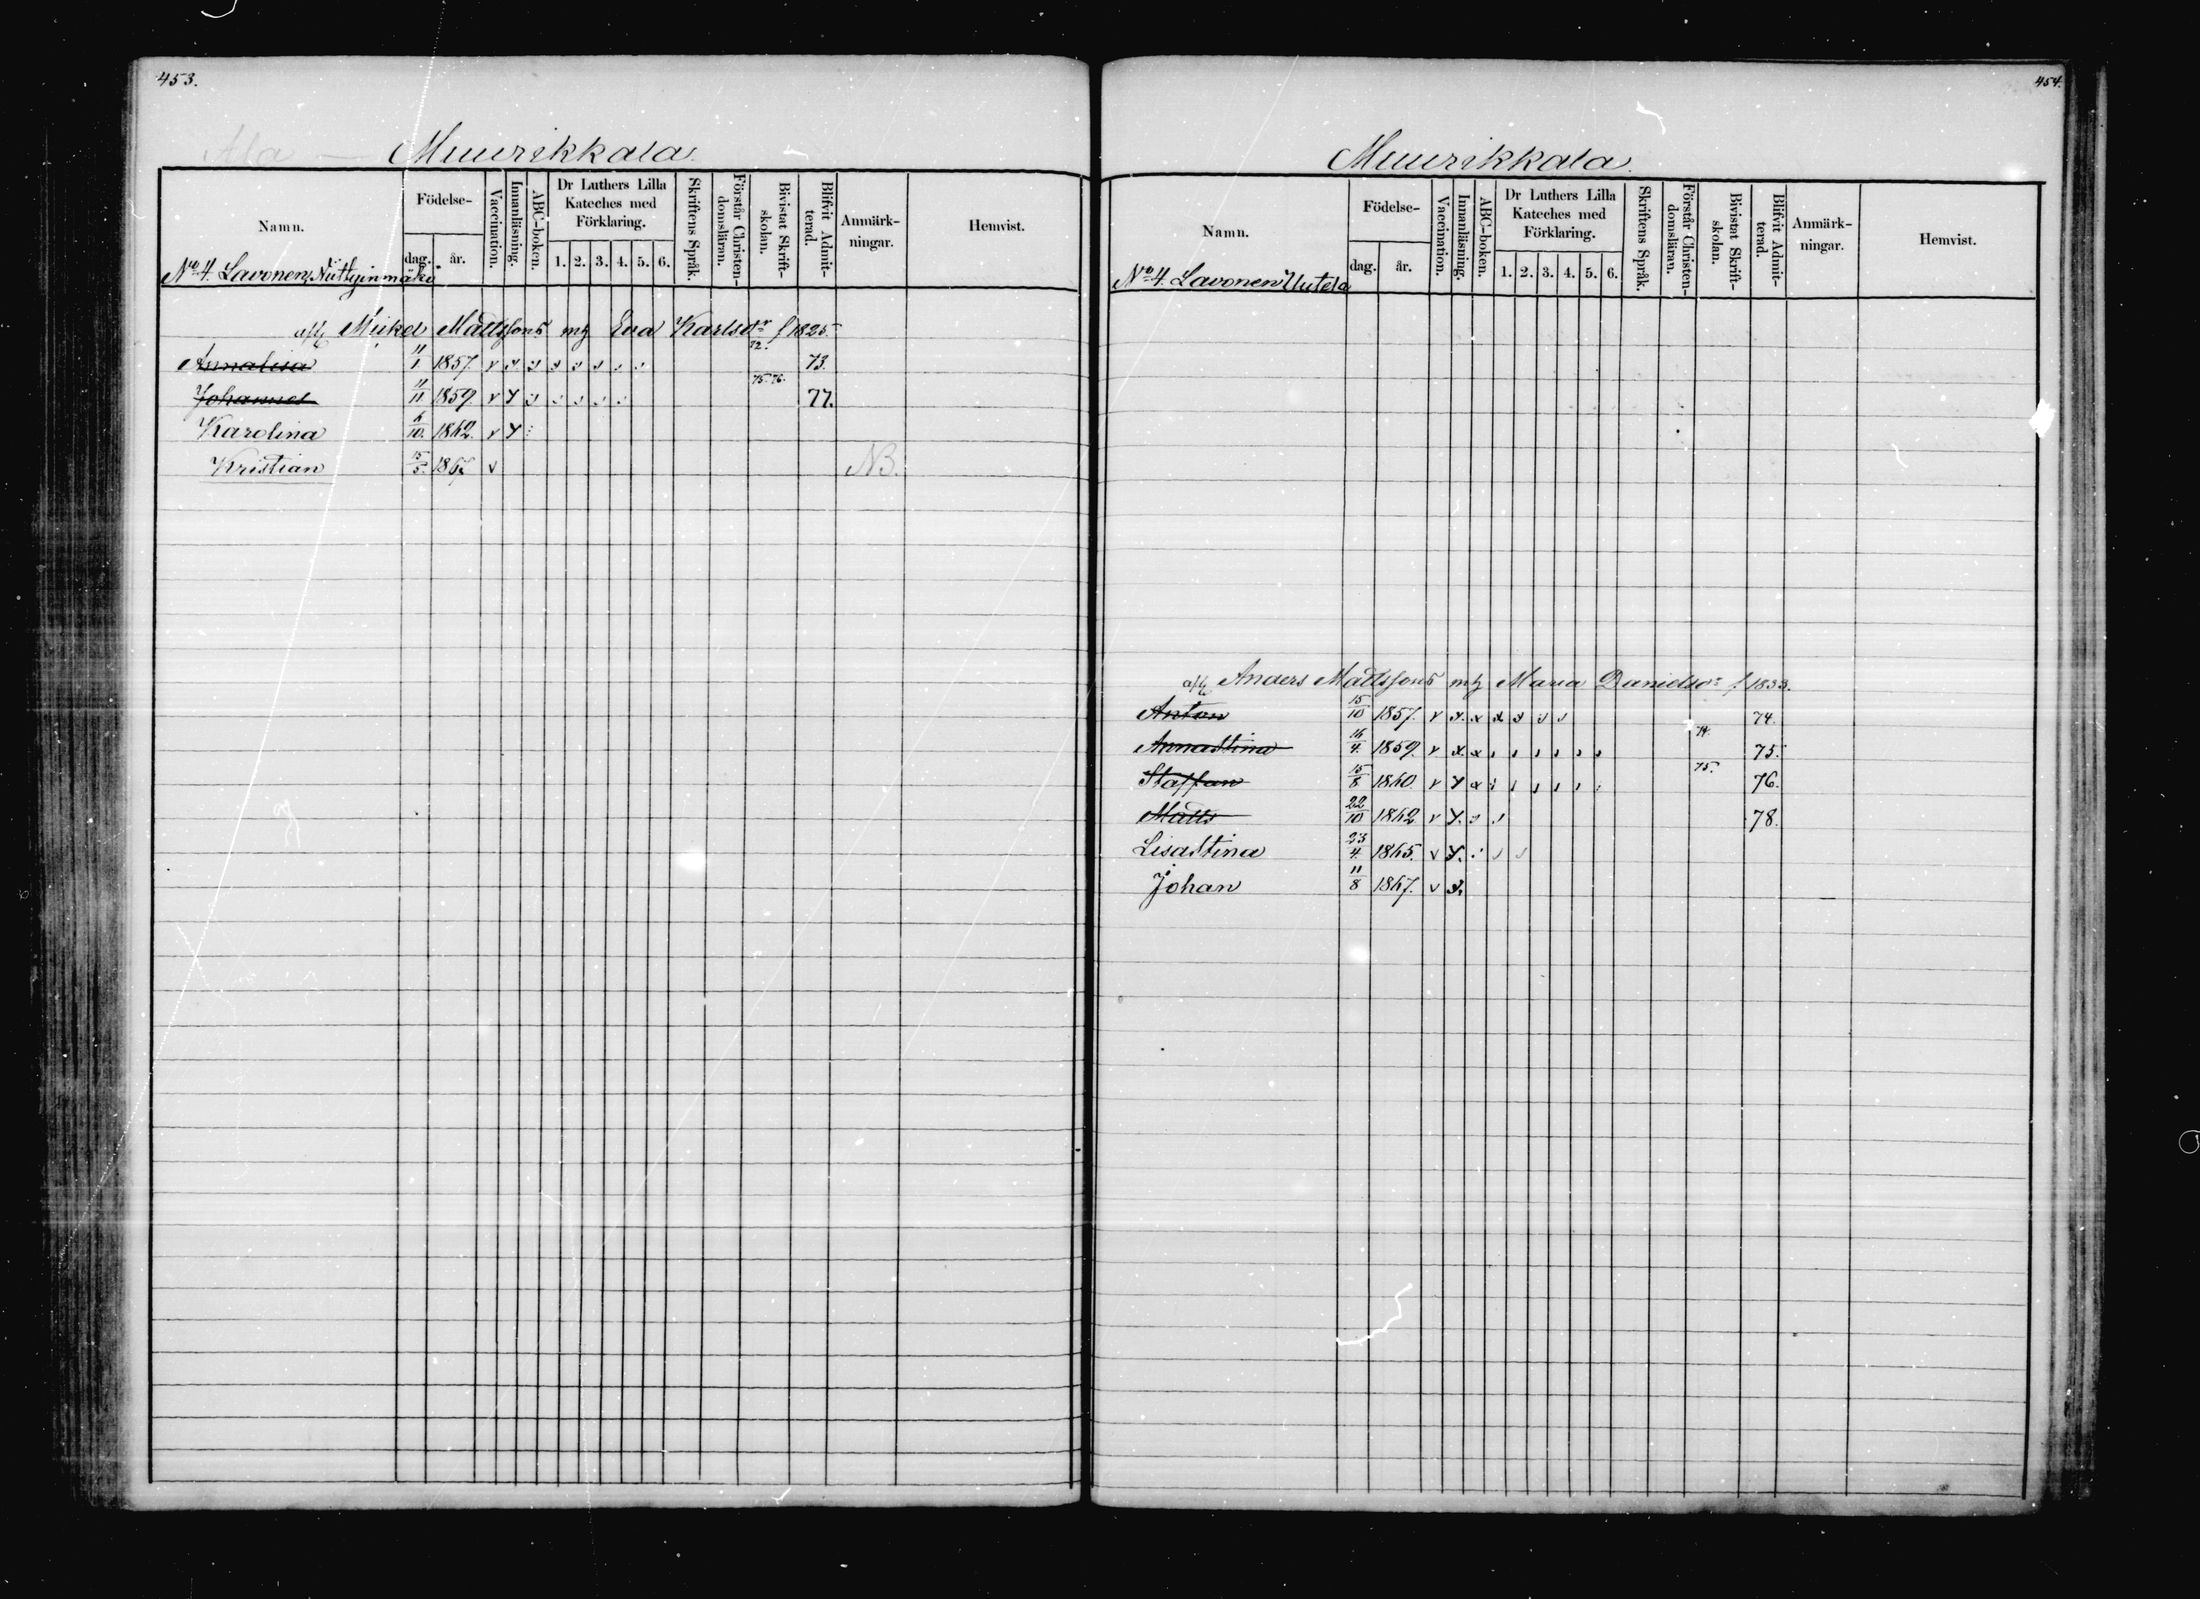 453.
Ala — Muurikkala.
Namn.
Födelse-
dag.
år.
Vaccination.
Innanläsning.
ABC-boken.
Dr Luthers Lilla Kateches med Förklaring.
1. 2. 3. 4. 5. 6.
Skriftens Språk.
Förstår Christen-domsläran.
Bivistat Skrift-skolan.
Blifvit Admit-terad.
Anmärk-ningar.
Hemvist.
No 4. Lavonen,
af Mickel Mattsson mh Eva Karlsdr f 1825
Annalisa 11/1 1857. v 72. 73.
Johannes 11/11 1859. v 75. 76. 77.
Karolina 6/10. 1862. v
Kristian 15/5. 1867 v NB.
454.
Muurikkala.
Namn.
Födelse-
dag.
år.
Vaccination.
Innanläsning.
ABC-boken.
Dr Luthers Lilla Kateches med Förklaring.
1. 2. 3. 4. 5. 6.
Skriftens Språk.
Förstår Christen-domsläran.
Bivistat Skrift-skolan.
Blifvit Admit-terad.
Anmärk-ningar.
Hemvist.
No 4. Lavonen Uutela
af Anders Mattsson mh Maria Danielsdr f. 1833.
Anton 15/10 1857. v 74.
Annastina 16/4. 1859. v 74. 75.
Staffan 15/8 1860. v 75. 76.
Matts 22/10 1862 v 78.
Lisastina 23/4. 1865. v
Johan 11/8 1867. v